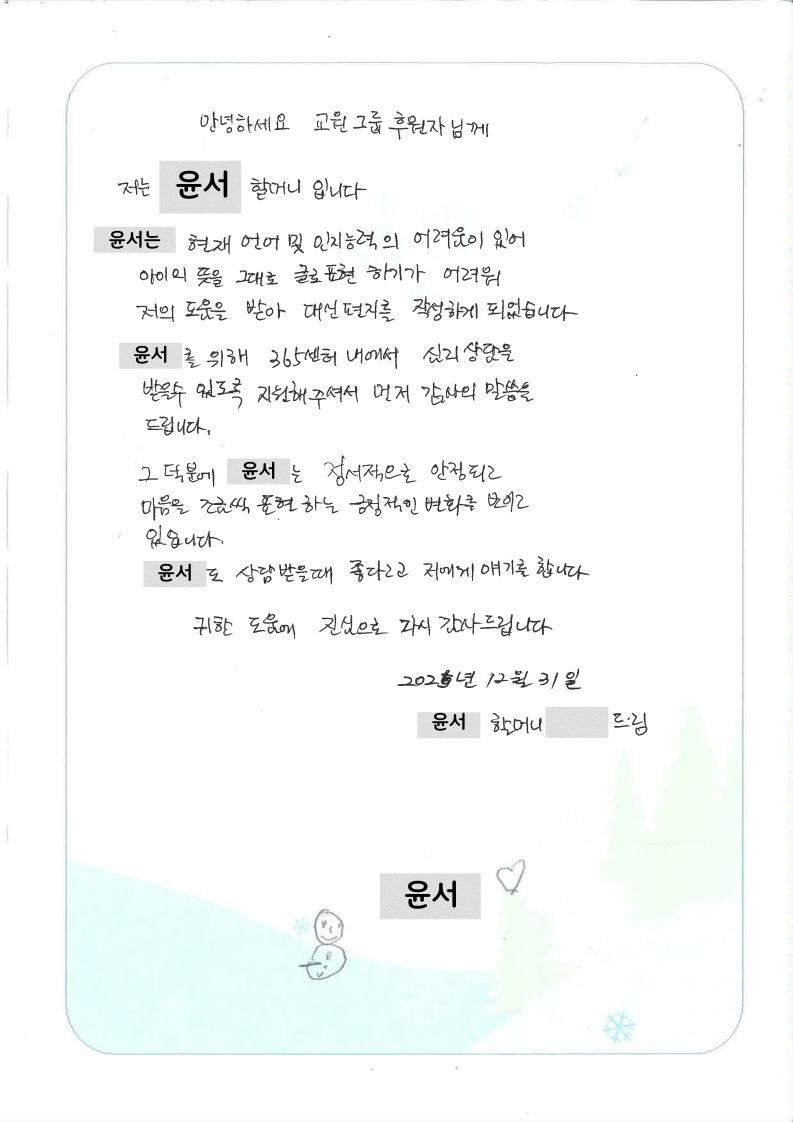 안녕하세요 교원그룹 후원자님께
저는 윤서 할머니 입니다
윤서는 현재 언어 및 인지능력의 어려움이 있어
아이의 뜻을 그대로 글로표현 하기가 어려워
저의 도움을 받아 대신편지를 작성하게 되었습니다
윤서를 위해 365센터 내에서 심리상담을
받을수 있도록 지원해주셔서 먼저 감사의 말씀을
드립니다.
그 덕분에 윤서는 정서적으로 안정되고
마음을 조금씩 표현하는 긍정적인 변화를 보이고
있습니다.
윤서도 상담받을때 좋다고 저에게 얘기를 합니다
귀한 도움에 진심으로 다시 감사드립니다
2025년 12월 31일
윤서 할머니 드림
윤서